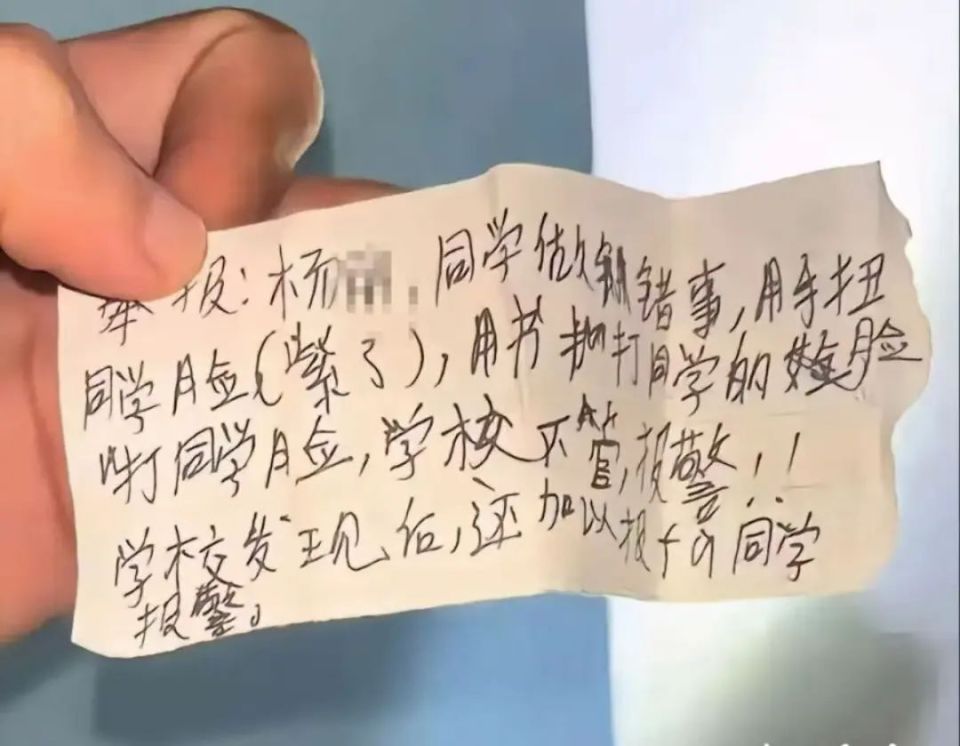 举报：杨，同学做错事，用手扭
同学脸（紫了），用书抽打同学的脸
啪打同学脸，学校不管，报警！！
学校发现后，还加以报 同学
报警。